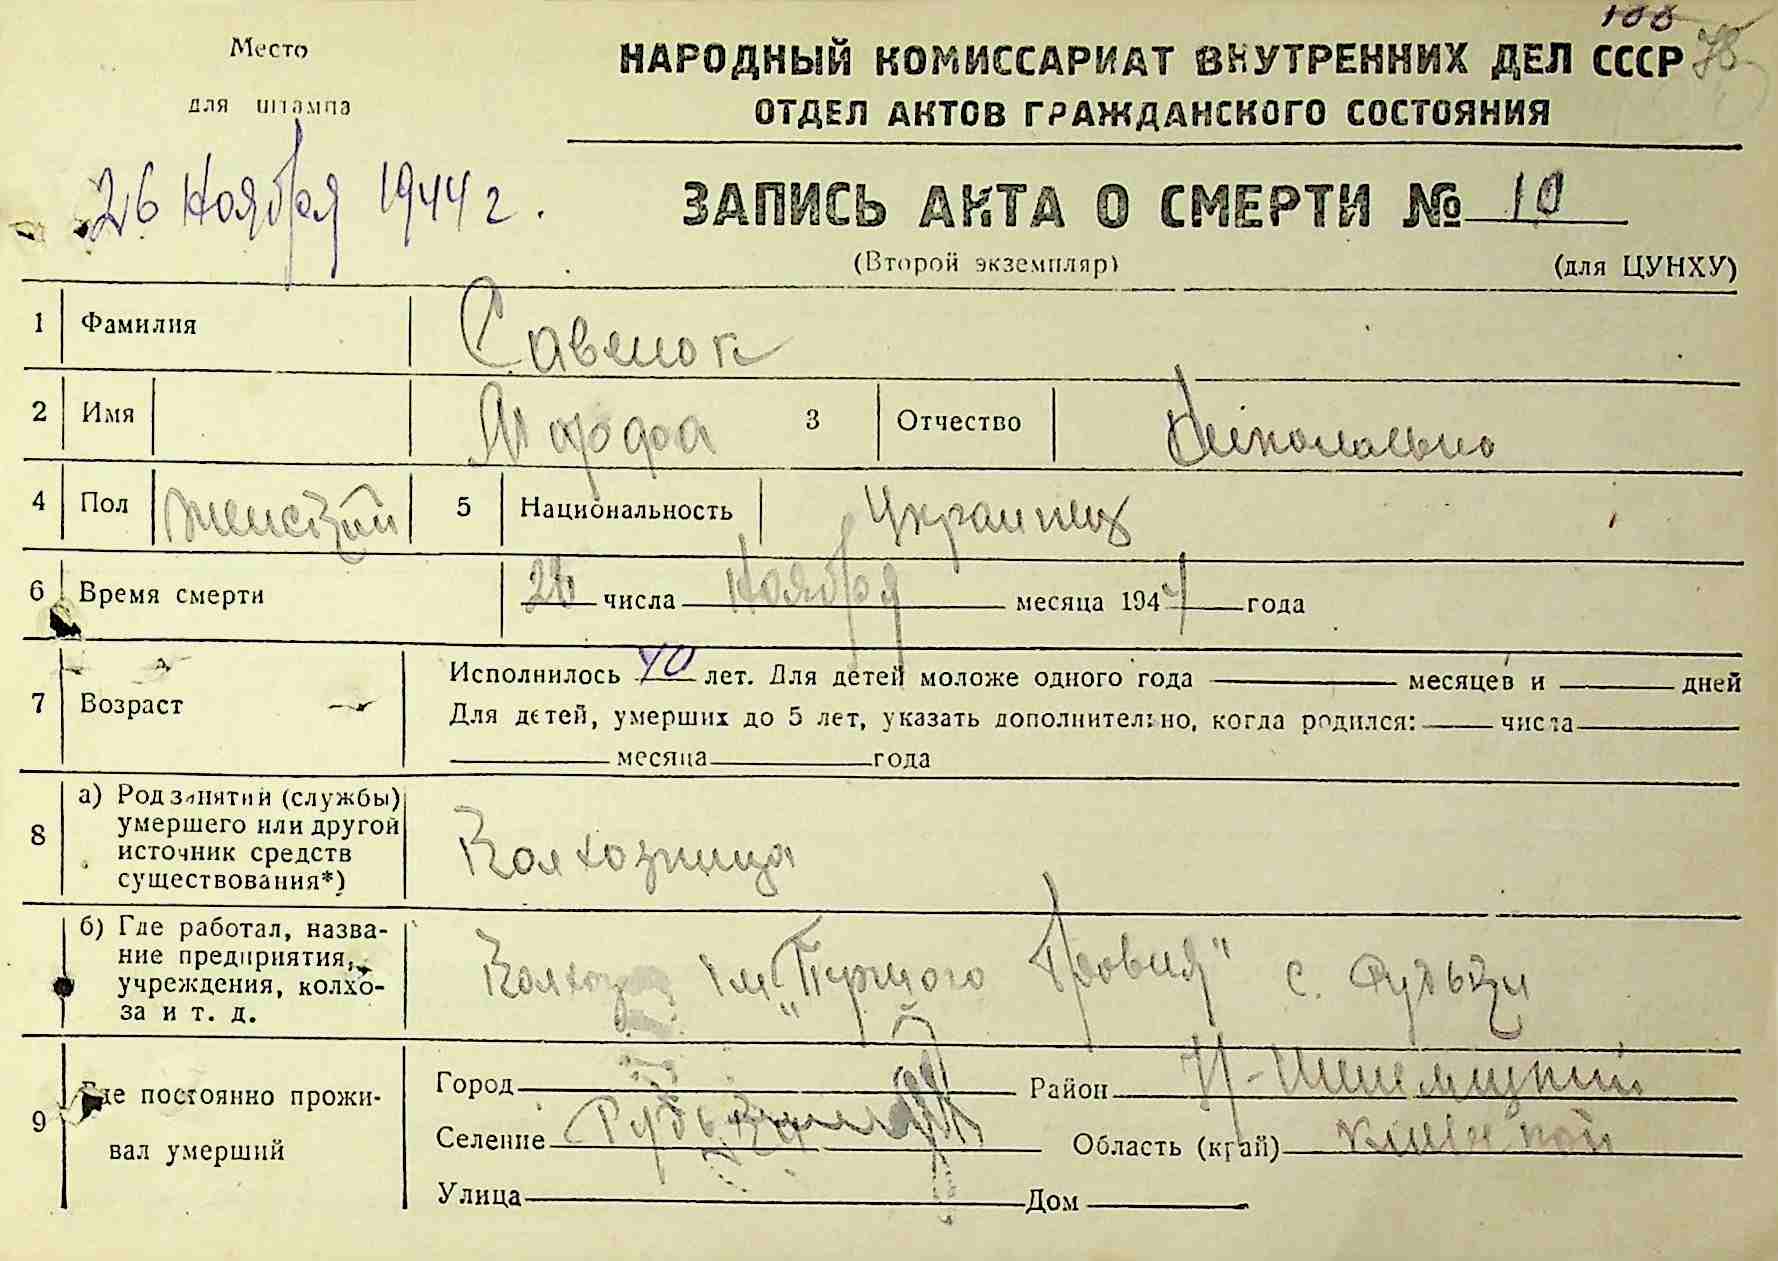 Место
для штампа
26 Ноября 1944 г.
НАРОДНЫЙ КОМИССАРИАТ ВНУТРЕННИХ ДЕЛ СССР
ОТДЕЛ АКТОВ ГРАЖДАНСКОГО СОСТОЯНИЯ
ЗАПИСЬ АКТА О СМЕРТИ № 10
(Второй экземпляр) (для ЦУНХУ)
1 Фамилия Савенок
2 Имя Марфа 3 Отчество
4 Пол женский 5 Национальность
6 Время смерти 26 числа Ноября месяца 1944 года
7 Возраст
Исполнилось 70 лет. Для детей моложе одного года месяцев и дней
Для детей, умерших до 5 лет, указать дополнительно, когда родился: числа
месяца года
8 а) Род занятий (службы)
умершего или другой
источник средств
существования*)
Колхозница
б) Где работал, назва-
ние предприятия,
учреждения, колхо-
за и т. д.
Колхоз с.
9 Где постоянно прожи-
вал умерший
Город Район
Селение Область (край)
Улица Дом